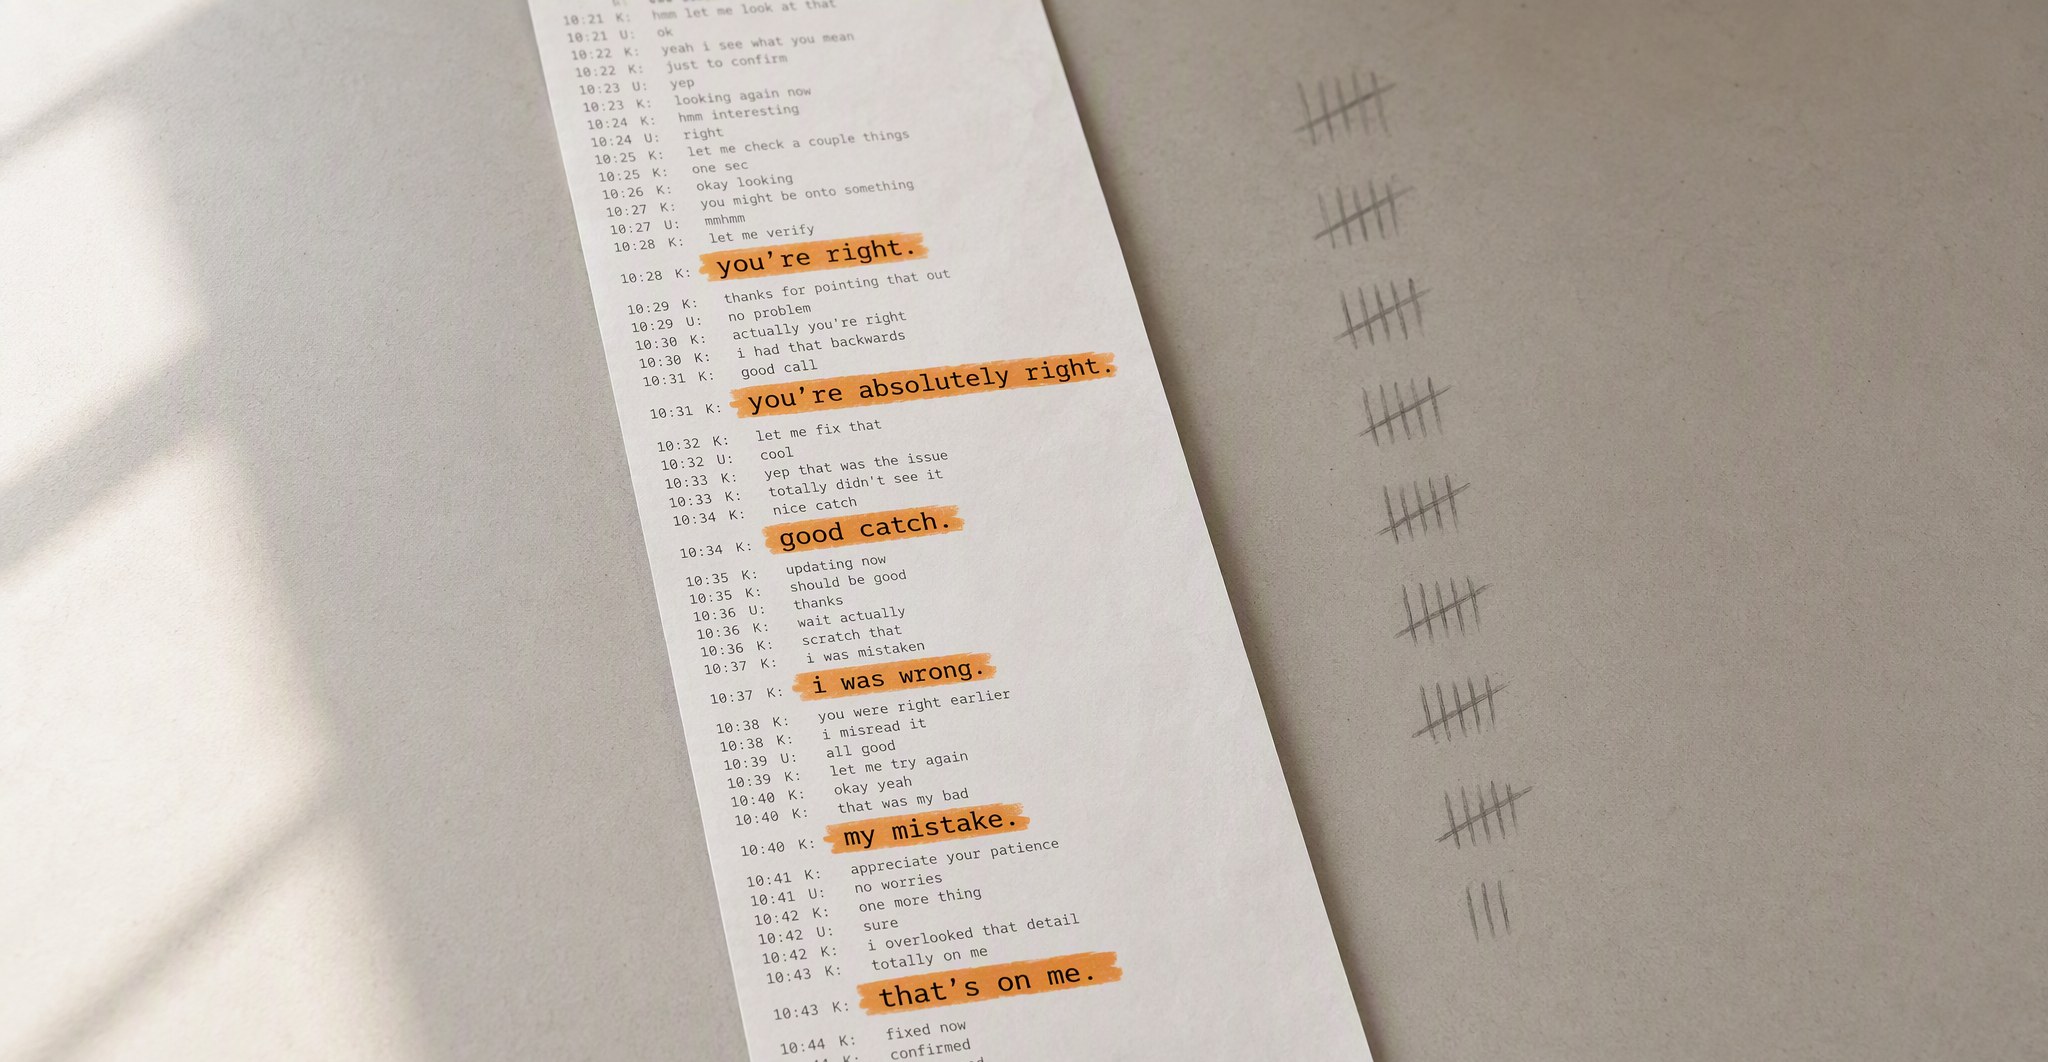 10:21 K: hmm let me look at that
10:21 U: ok
10:22 K: yeah i see what you mean
10:22 K: just to confirm
10:23 U: yep
10:23 K: looking again now
10:24 K: hmm interesting
10:24 U: right
10:25 K: let me check a couple things
10:25 K: one sec
10:26 K: okay looking
10:27 K: you might be onto something
10:27 U: mmhmm
10:28 K: let me verify
10:28 K: you’re right.
10:29 K: thanks for pointing that out
10:29 U: no problem
10:30 K: actually you're right
10:30 K: i had that backwards
10:31 K: good call
10:31 K: you’re absolutely right.
10:32 K: let me fix that
10:32 U: cool
10:33 K: yep that was the issue
10:33 K: totally didn't see it
10:34 K: nice catch
10:34 K: good catch.
10:35 K: updating now
10:35 K: should be good
10:36 U: thanks
10:36 K: wait actually
10:36 K: scratch that
10:37 K: i was mistaken
10:37 K: i was wrong.
10:38 K: you were right earlier
10:38 K: i misread it
10:39 U: all good
10:39 K: let me try again
10:40 K: okay yeah
10:40 K: that was my bad
10:40 K: my mistake.
10:41 K: appreciate your patience
10:41 U: no worries
10:42 K: one more thing
10:42 U: sure
10:42 K: i overlooked that detail
10:43 K: totally on me
10:43 K: that’s on me.
10:44 K: fixed now
K: confirmed